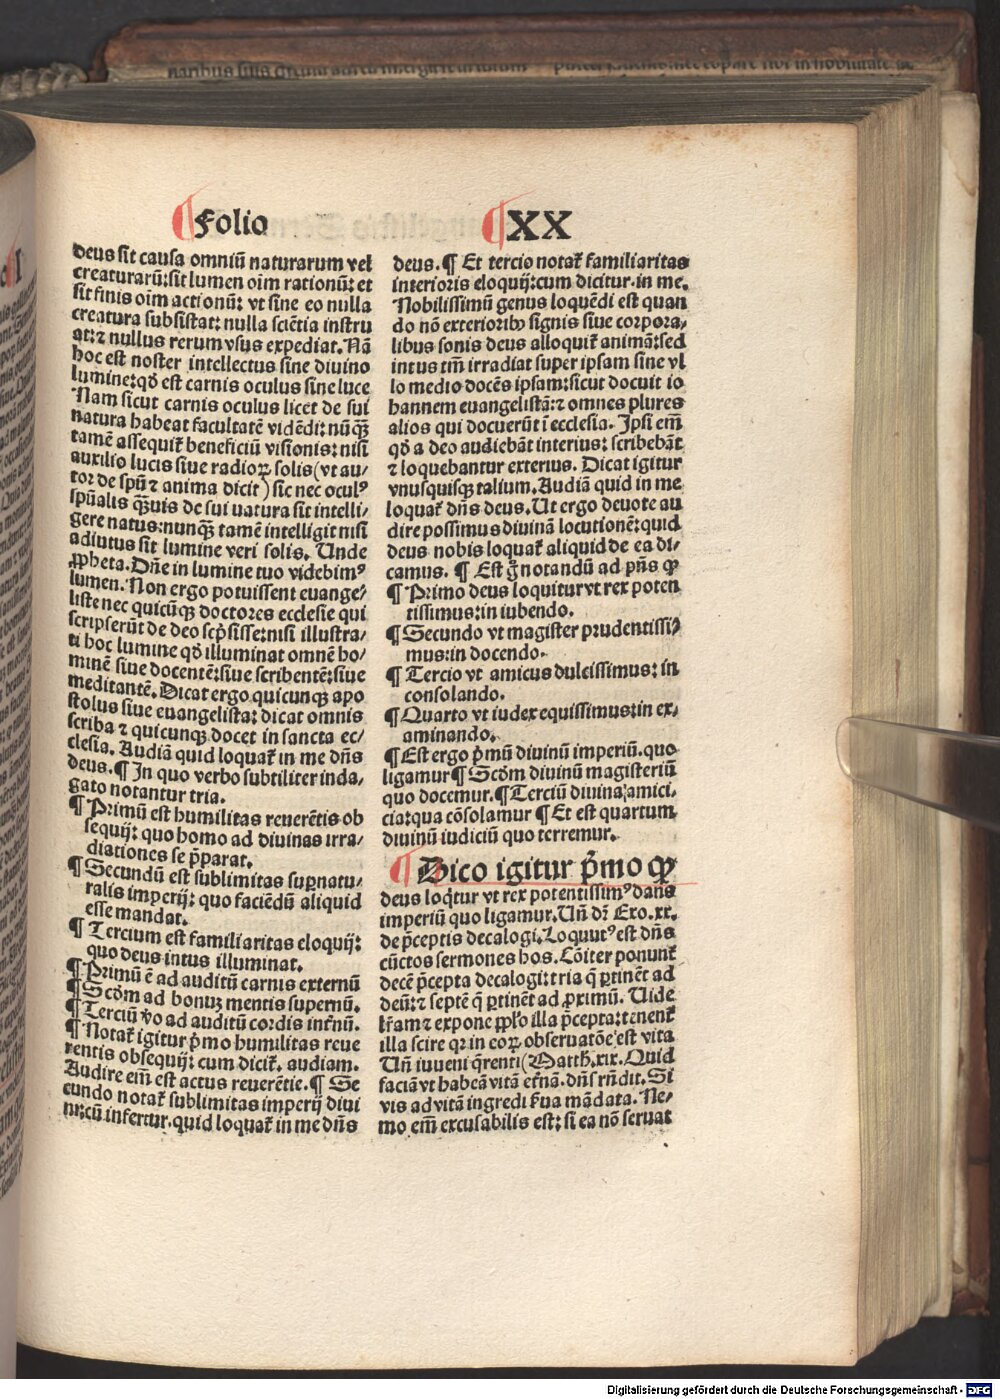 ¶ Folio
¶ XX
deus sit causa omniū naturarum vel
creaturarū: sit lumen oim rationū: et
sit finis oim actionū: vt sine eo nulla
creatura subsistat: nulla sciētia instru
at: ⁊ nullus rerum vsus expediat. Nā
hoc est noster intellectus sine diuino
lumine: qđ est carnis oculus sine luce
Nam sicut carnis oculus licet de sui
natura habeat facultatē vidēdi: nūꝗ̄
tamē assequit᷑ beneficiū visionis: nisi
auxilio lucis siue radioꝝ solis (vt au⸗
tor de spū ⁊ anima dicit) sic nec oculꝰ
spūalis ꝗ̄uis de sui uatura sit intelli⸗
gere natus: nunꝗ̄ tamē intelligit nisi
adiutus sit lumine veri solis. Unde
ꝓpheta. Dn̄e in lumine tuo videbimꝰ
lumen. Non ergo potuissent euange⸗
liste nec quicūqꝫ doctores ecclesie qui
scripserūt de deo scp̄sisse: nisi illustra⸗
ti hoc lumine qđ illuminat omnē ho⸗
minē siue docentē: siue scribentē: siue
meditantē. Dicat ergo quicunqꝫ apo
stolus siue euangelista: dicat omnis
scriba ⁊ quicunqꝫ docet in sancta ec⸗
clesia. Audiā quid loquat᷑ in me dn̄s
deus. ¶ In quo verbo subtiliter inda⸗
gato notantur tria.
¶ Primū est humilitas reuerētis ob
sequij: quo homo ad diuinas irra⸗
diationes se p̄parat.
¶ Secundū est sublimitas suꝑnatu⸗
ralis imperij: quo faciēdū aliquid
esse mandat.
¶ Tercium est familiaritas eloquij:
quo deus intus illuminat.
¶ Primū ē ad auditū carnis externū
¶ Scđm ad bonuꝫ mentis supernū.
¶ Terciū v̊o ad auditū cordis inf̄nū.
¶ Notat᷑ igitur p̄mo humilitas reue
rentis obsequij: cum dicit᷑. audiam.
Audire em̄ est actus reuerētie. ¶ Se
cundo notat᷑ sublimitas imperij diui
ni: cū infertur. quid loquat᷑ in me dn̄s
deus. ¶ Et tercio notat᷑ familiaritas
interioris eloquij: cum dicitur. in me.
Nobilissimū genus loquēdi est quan
do nō exterioribꝰ signis siue corpora⸗
libus sonis deus alloquit᷑ animā: sed
intus tm̄ irradiat super ipsam sine vl
lo medio docēs ipsam: sicut docuit io
hannem euangelistā: ⁊ omnes plures
alios qui docuerūt ī ecclesia. Ipsi em̄
qđ a deo audiebāt interius: scribebāt
⁊ loquebantur exterius. Dicat igitur
vnusquisqꝫ talium. Audiā quid in me
loquat᷑ dn̄s deus. Ut ergo deuote au
dire possimus diuinā locutionē: quid
deus nobis loquat᷑ aliquid de ea di⸗
camus. ¶ Est g̊ notandū ad p̄n̄s ꝙ
¶ Primo deus loquitur vt rex poten
tissimus: in iubendo.
¶ Secundo vt magister prudentissi⸗
mus: in docendo.
¶ Tercio vt amicus dulcissimus: in
consolando.
¶ Quarto vt iudex equissimus: in ex⸗
aminando.
¶ Est ergo p̄mū diuinū imperiū. quo
ligamur ¶ Scđm diuinū magisteriū
quo docemur. ¶ Terciū diuina amici⸗
cia: qua cōsolamur ¶ Et est quartum
diuinū iudiciū quo terremur.
¶ Dico igitur p̄mo ꝙ
deus loq̄tur vt rex potentissimꝰ dans
imperiū quo ligamur. Un̄ dr̄ Exo. xx.
de p̄ceptis decalogi. Loquutꝰ est dn̄s
cūctos sermones hos. Cōiter ponunt᷑
decē p̄cepta decalogi: tria q̄ ꝑtinēt ad
deū: ⁊ septē q̄ ꝑtinēt ad ꝓximū. Uide
lr̄am ⁊ expone ꝓplo illa p̄cepta: tenent᷑
illa scire qꝛ in coꝝ obseruatōe est vita
Un̄ iuueni q̄renti (Matth. xix. Quid
faciā vt habeā vitā et̄nā. dn̄s rn̄dit. Si
vis ad vitā ingredi ẜua mādata. Ne⸗
mo em̄ excusabilis est: si ea nō seruat
Digitalisierung gefördert durch die Deutsche Forschungsgemeinschaft - DFG